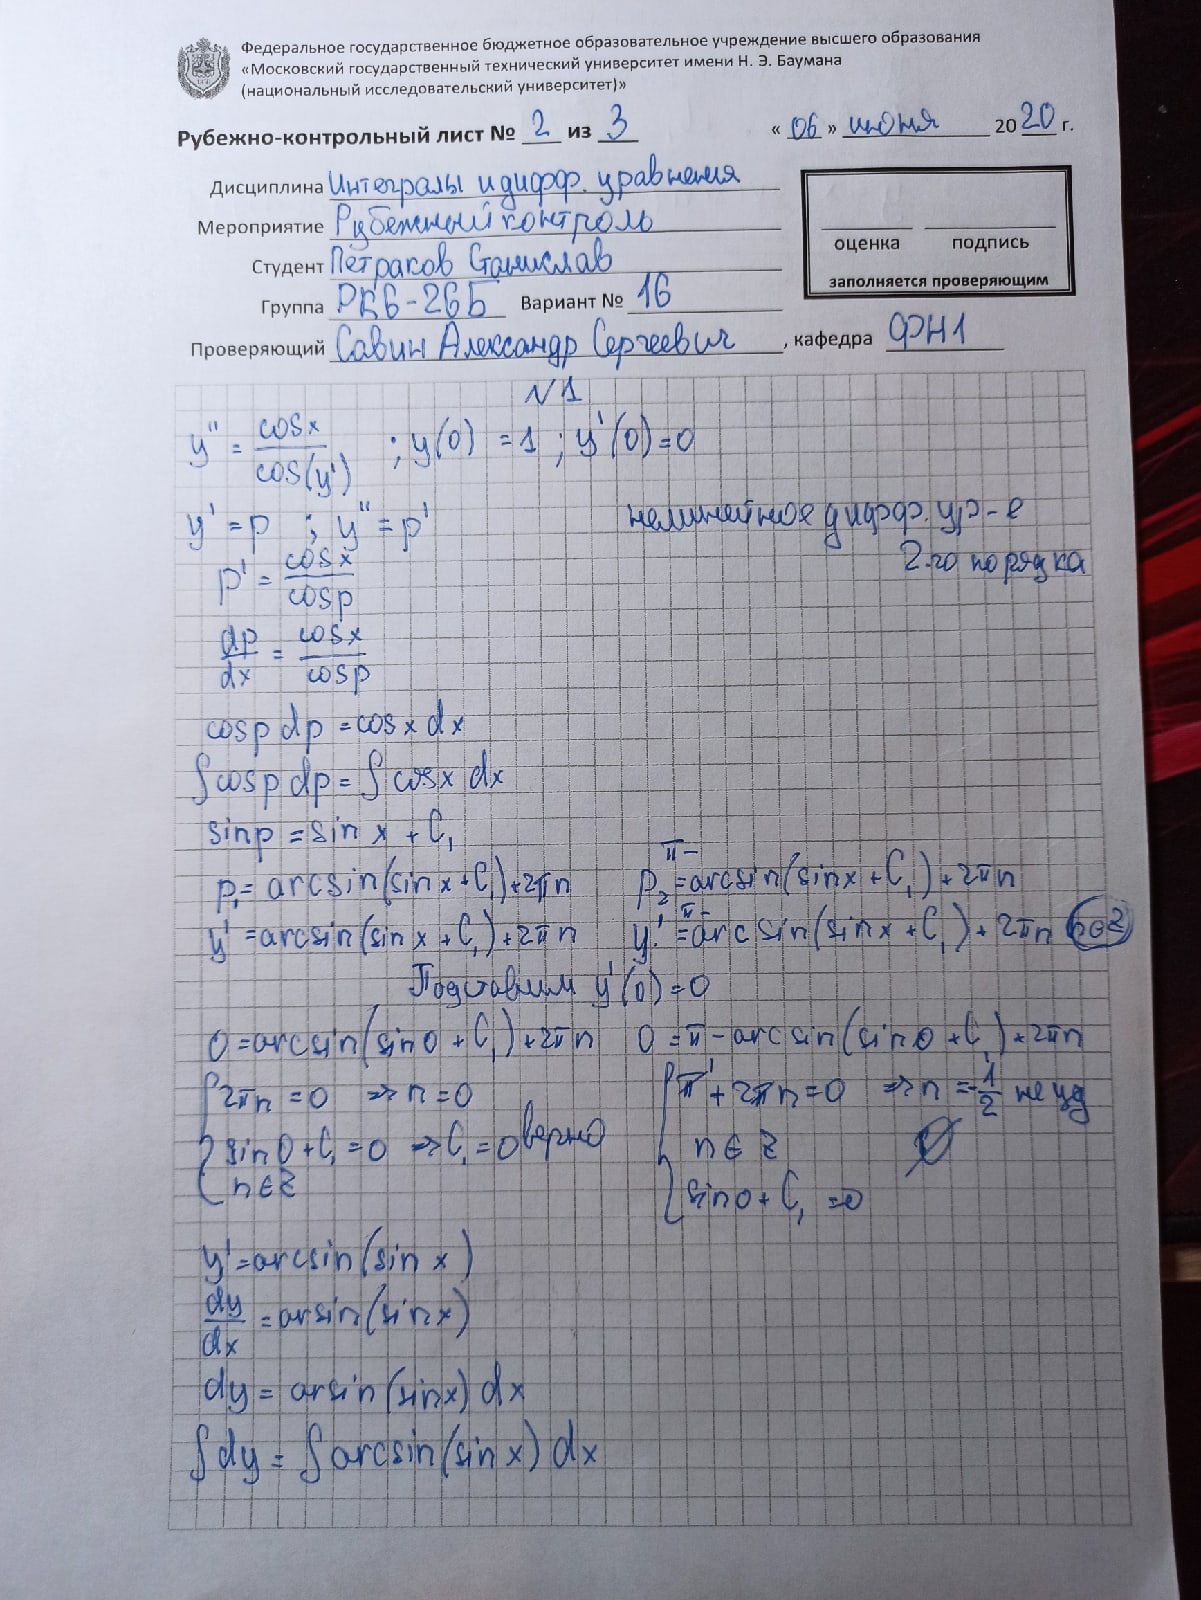 Федеральное государственное бюджетное образовательное учреждение высшего образования
«Московский государственный технический университет имени Н. Э. Баумана
(национальный исследовательский университет)»
Рубежно-контрольный лист № 2 из 3 « 06 » июня 2020 г.
Дисциплина Интегралы и дифф. уравнения
Мероприятие Рубежный контроль
Студент Петраков Станислав
Группа РК6-26Б Вариант № 16
Проверяющий Савин Александр Сергеевич, кафедра ФН1
оценка подпись
заполняется проверяющим
N1
y'' = cosx / cos(y') ; y(0) = 1 ; y'(0) = 0
y' = p ; y'' = p' нелинейное дифф. ур-е
2-го порядка
p' = cosx / cosp
dp/dx = cosx / cosp
cosp dp = cosx dx
∫cosp dp = ∫cosx dx
sinp = sinx + C₁
p₁ = arcsin(sinx + C₁) + 2πn p₂ = π - arcsin(sinx + C₁) + 2πn
y' = arcsin(sinx + C₁) + 2πn y' = π - arcsin(sinx + C₁) + 2πn n∈Z
Подставим y'(0) = 0
0 = arcsin(sin0 + C₁) + 2πn 0 = π - arcsin(sin0 + C₁) + 2πn
2πn = 0 => n = 0 π + 2πn = 0 => n = -1/2 не уд
sin0 + C₁ = 0 => C₁ = 0 верно n∈Z ∅
n∈Z sin0 + C₁ = 0
y' = arcsin(sinx)
dy/dx = arsin(sinx)
dy = arsin(sinx) dx
∫dy = ∫arcsin(sinx) dx